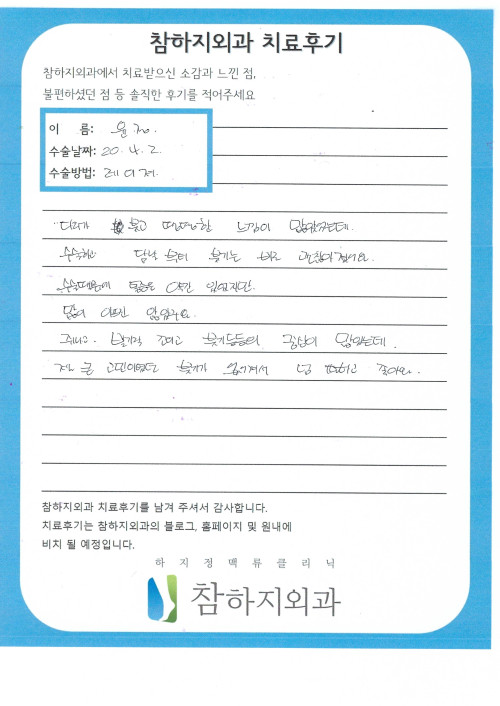 참하지외과 치료후기
참하지외과에서 치료받으신 소감과 느낀 점,
불편하셨던 점 등 솔직한 후기를 적어주세요
이 름: 윤
수술날짜: 20.4.2.
수술방법: 레이저.
다리가 붓고 땡땡한 느낌이 많았는데.
수술하고 담날 부터 붓기는 바로 괜찮아졌어요.
수술때문에 통증은 약간 있었지만.
많이 아프진 않았구요.
쥐나고. 붓기등등의 증상이 많았는데.
제일 큰 고민이였던 붓기가 없어져서 넘 편하고 좋아요.
참하지외과 치료후기를 남겨 주셔서 감사합니다.
치료후기는 참하지외과의 블로그, 홈페이지 및 원내에
비치 될 예정입니다.
하지정맥류클리닉
참하지외과